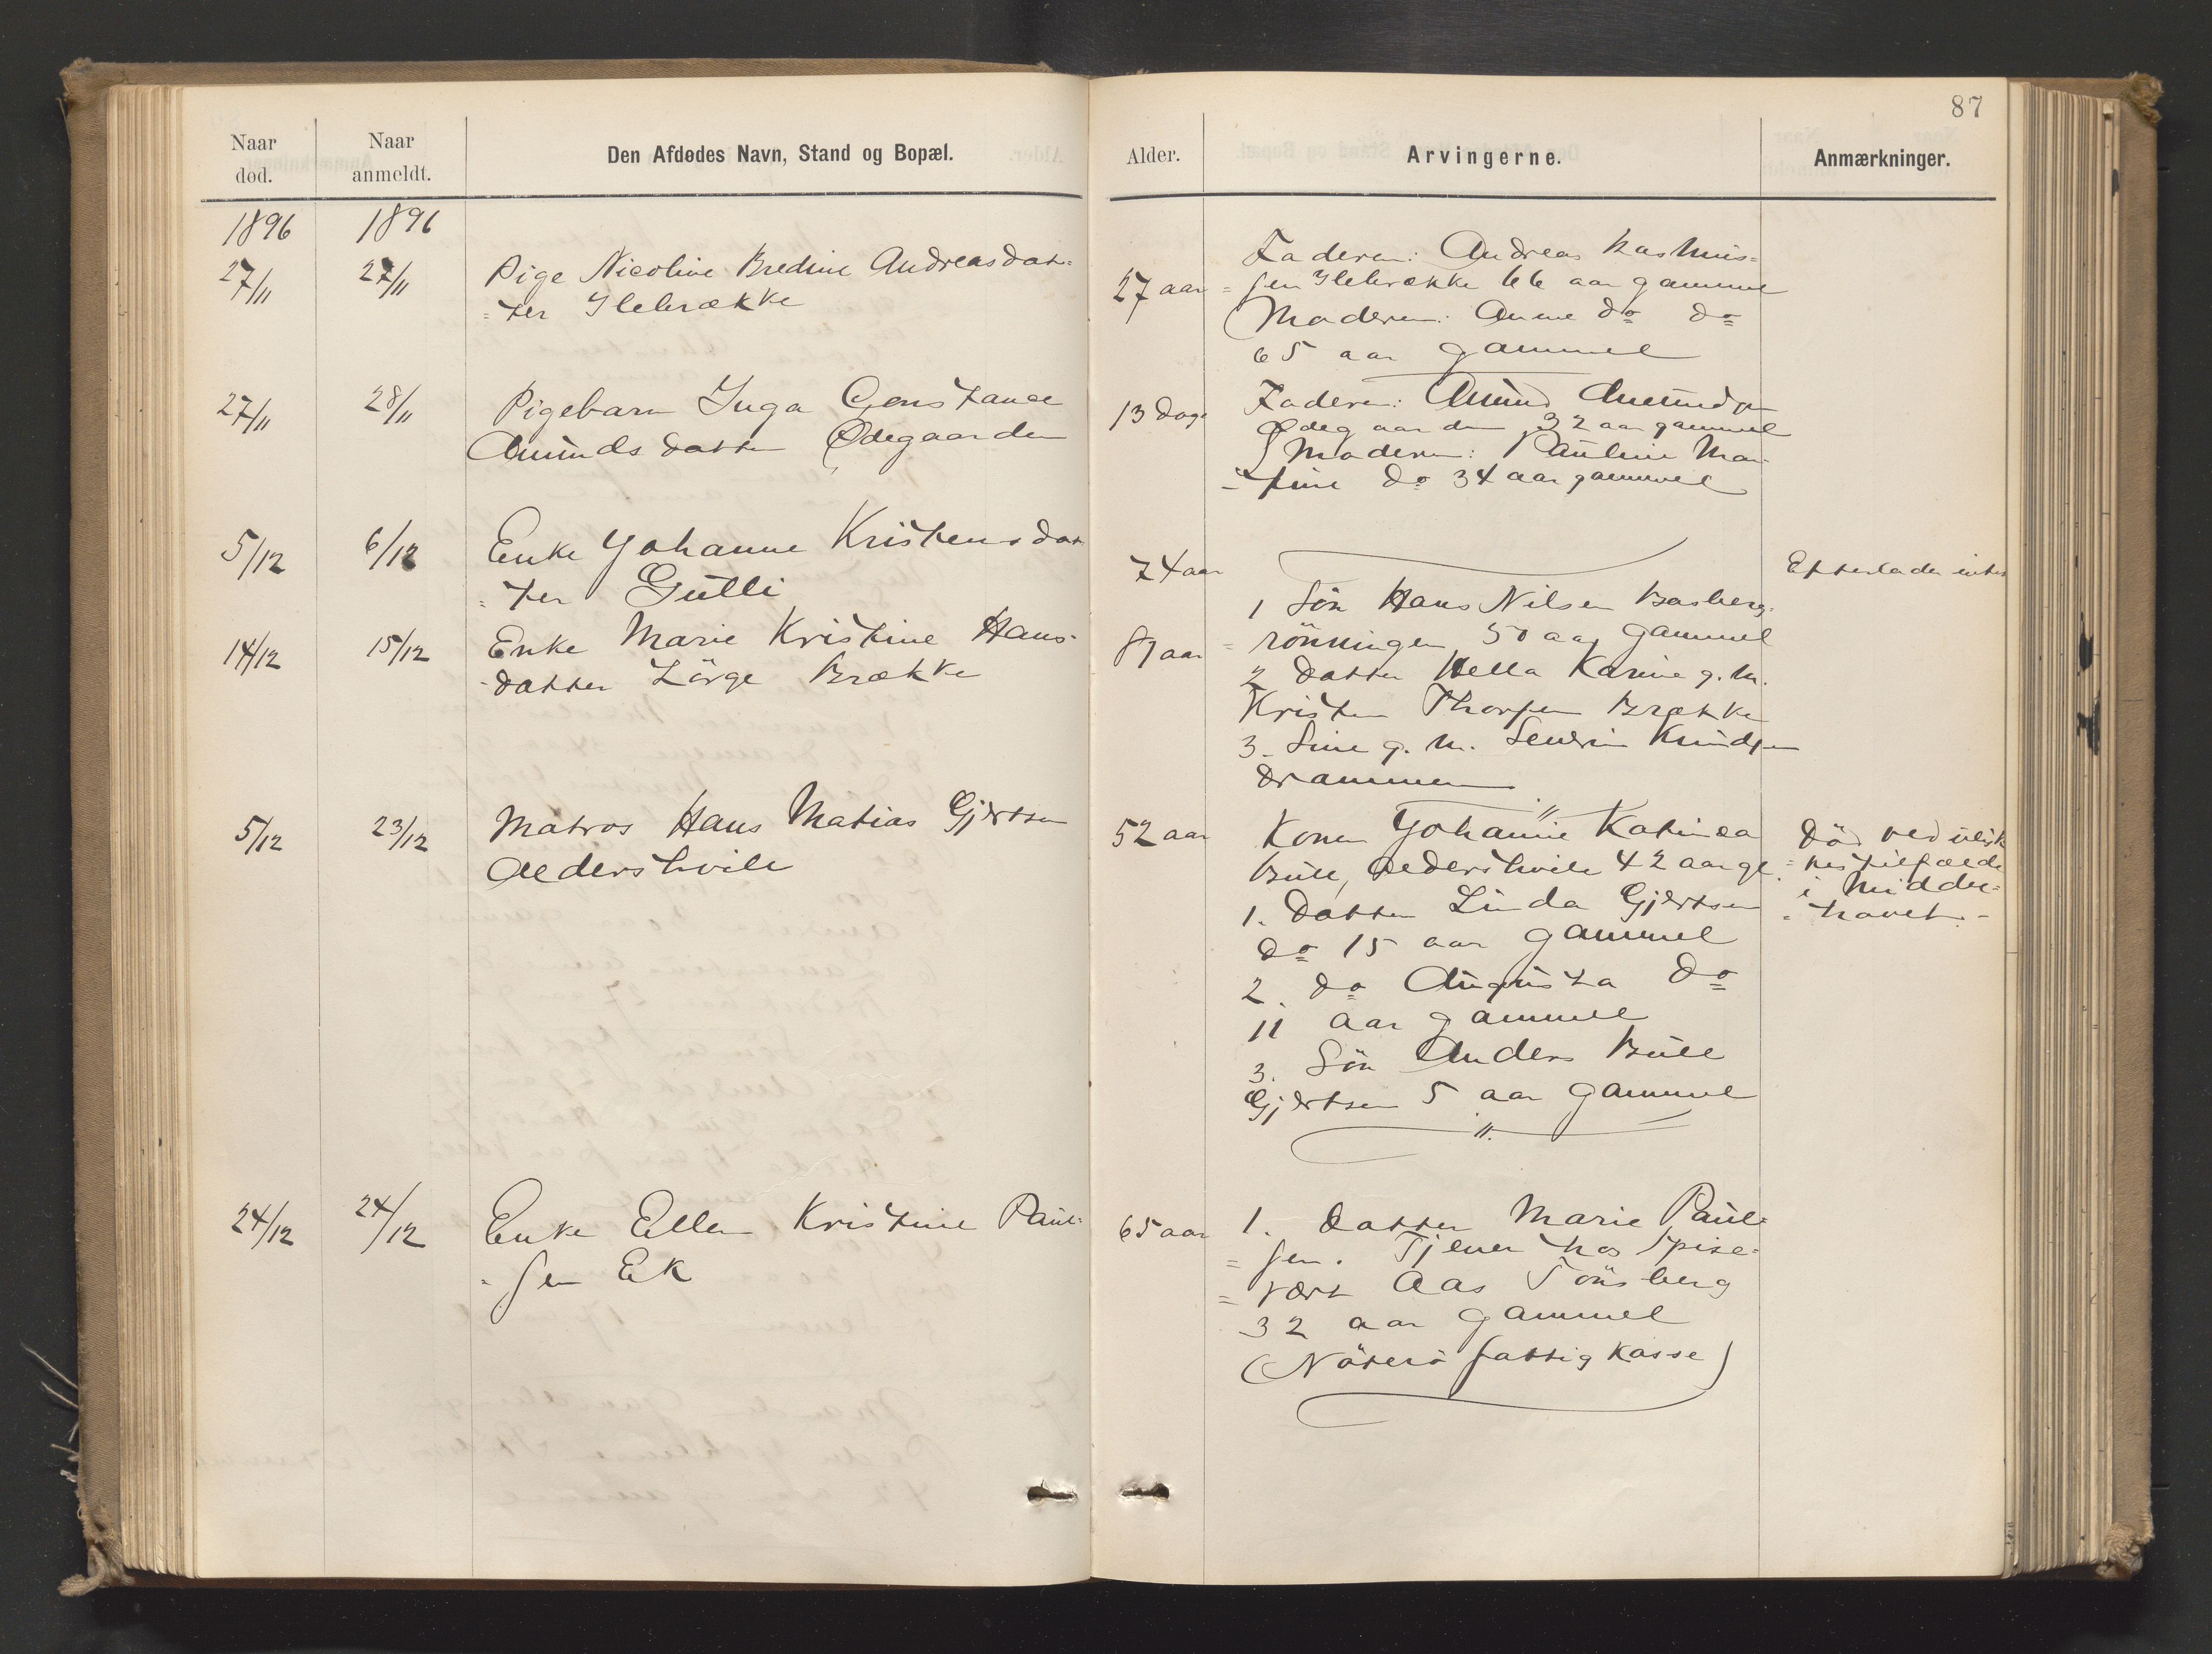 87
Naar død.
Naar anmeldt.
Den Afdødes Navn, Stand og Bopæl.
Alder.
Arvingerne.
Anmærkninger.
1896 1896
27/11 27/11 Pige Nicoline Bredine Andreasdat=
=ter Ilebrække
27 aar
Faderen: Andreas Rasmus=
=sen Ilebrække 66 aar gammel
Moderen: Anne do do
65 aar gammel
27/11 28/11 Pigebarn Inga Constance
Amundsdatter Ødegaarden
13 Dage
Faderen: Amund Amundsen
Ødegaarden 32 aar gammel
Moderen: Pauline Mar=
=tine do 34 aar gammel
5/12 6/12 Enke Johanne Kristensdat
=ter Gulli
74 aar
Efterlader intet
14/12 15/12 Enke Marie Kristine Hans=
=datter Lörge Brække
81 aar
1 Sön Hans Nilsen Basberg=
=rönningen 50 aar gammel
2 Datter Hella Karine g. m.
Kristen Thorsen Brække
3. Sine g. m. Severin Knudsen
Drammen
5/12 23/12 Matros Hans Matias Gjertsen
Aedershvile
52 aar
Konen Johanne Katinca
Bull, Aedershvile 42 aar gl.
1. Datter Linda Gjertsen
do 15 aar gammel
2. do Augusta do
11 aar gammel
3. Sön Anders Bull
Gjertsen 5 aar gammel
Död ved ulyk
=kestilfælde
i Middel=
=havet.
24/12 24/12 Enke Ellen Kristine Paul=
=sen Ek
65 aar
1. Datter Marie Paul=
=sen. Tjener hos Spise=
=vært Aas Tönsberg
32 aar gammel
(Nöterö fattigkasse)